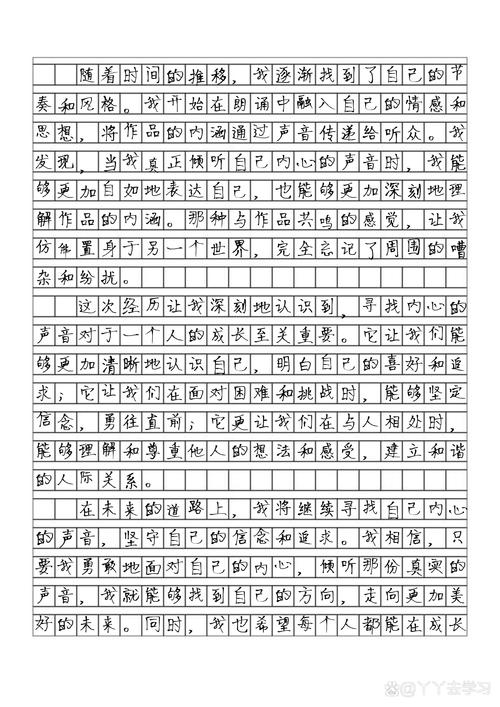 随着时间的推移，我逐渐找到了自己的节
奏和风格。我开始在朗诵中融入自己的情感和
思想，将作品的内涵通过声音传递给听众。我
发现，当我真正倾听自己内心的声音时，我能
够更加自如地表达自己，也能够更加深刻地理
解作品的内涵。那种与作品共鸣的感觉，让我
仿佛置身于另一个世界，完全忘记了周围的嘈
杂和纷扰。
这次经历让我深刻地认识到，寻找内心的
声音对于一个人的成长至关重要。它让我们能
够更加清晰地认识自己，明白自己的喜好和追
求；它让我们在面对困难和挑战时，能够坚定
信念，勇往直前；它更让我们在与人相处时，
能够理解和尊重他人的想法和感受，建立和谐
的人际关系。
在未来的道路上，我将继续寻找自己内心
的声音，坚守自己的信念和追求。我相信，只
要我勇敢地面对自己的内心，倾听那份真实的
声音，我就能够找到自己的方向，走向更加美
好的未来。同时，我也希望每个人都能在成长
@丫丫去学习